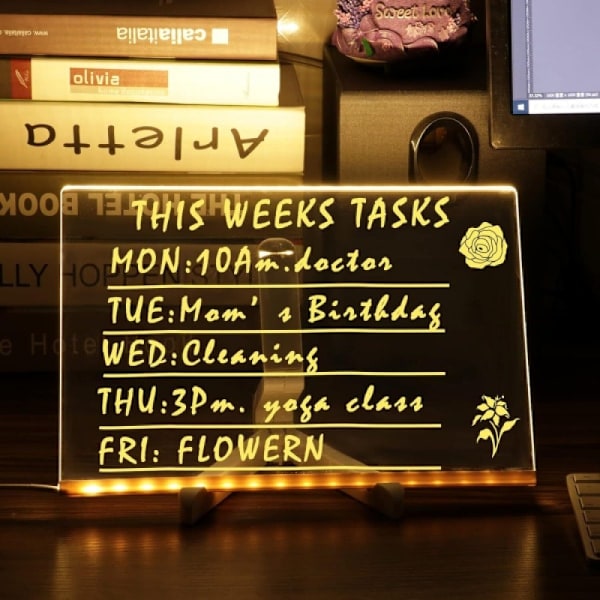 www.callaitalia.com
callaitalia
Sweet Love
olivia
Arletta
THE HOTEL BOOK
LLY HOPPEN STYLE
e Hote
THIS WEEKS TASKS
MON:10Am.doctor
TUE:Mom's Birthdag
WED:Cleaning
THU:3Pm. yoga class
FRI: FLOWERN